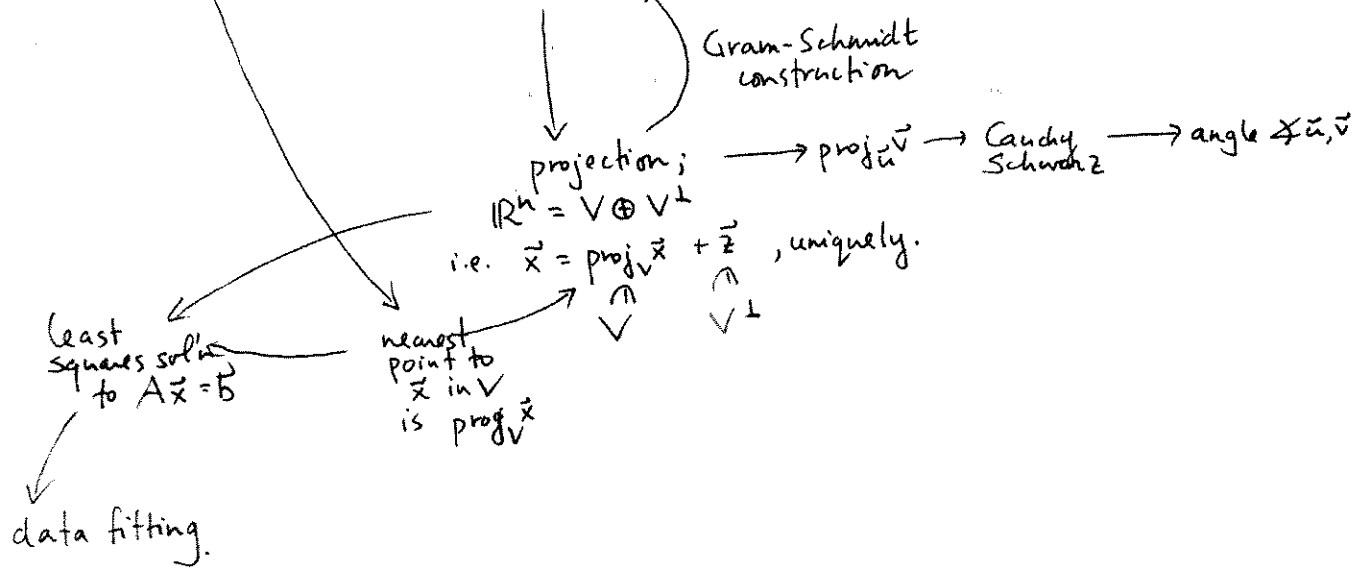 Gram-Schmidt
construction
projection; → proj_ū v⃗ → Cauchy Schwarz → angle ∡ ū, v⃗
ℝⁿ = V ⊕ V^⊥
i.e. x⃗ = proj_V x⃗ + z⃗ , uniquely.
∩ ∩
V V^⊥
least
squares sol'n
to Ax⃗ = b⃗
nearest
point to
x⃗ in V
is proj_V x⃗
data fitting.